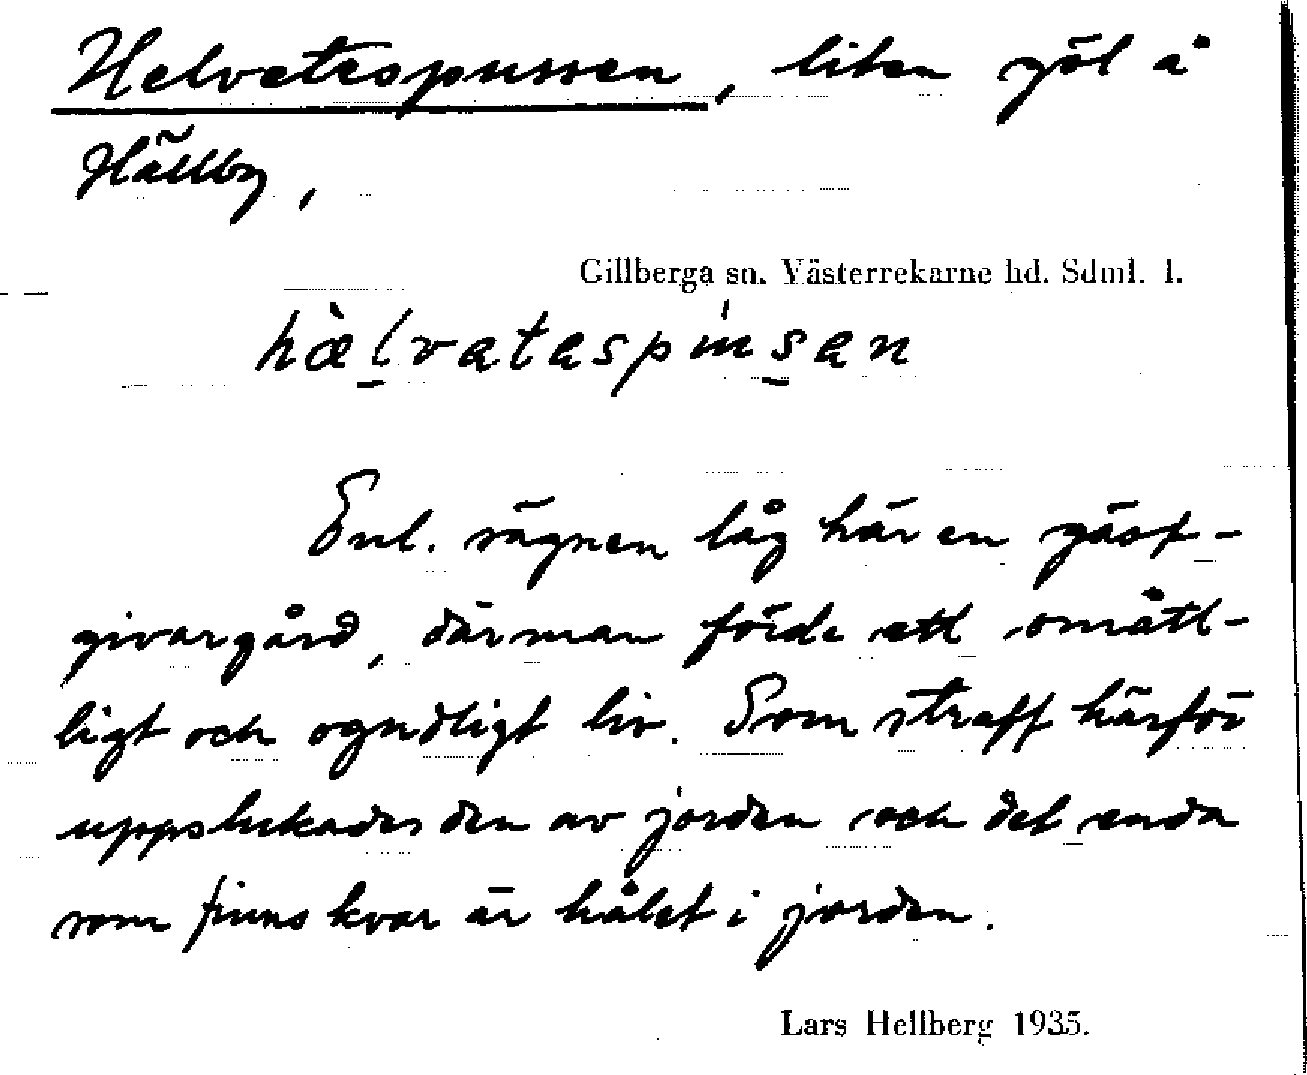 Helvetespussen, liten göl å
Hällby,
Gillberga sn. Västerrekarne hd. Sdml. l.
Enl. sägnen låg här en gäst-
givargård, där man förde ett omått-
ligt och ogudligt liv. Som straff härför
uppslukades den av jorden och det enda
som finns kvar är hålet i jorden.
Lars Hellberg 1935.